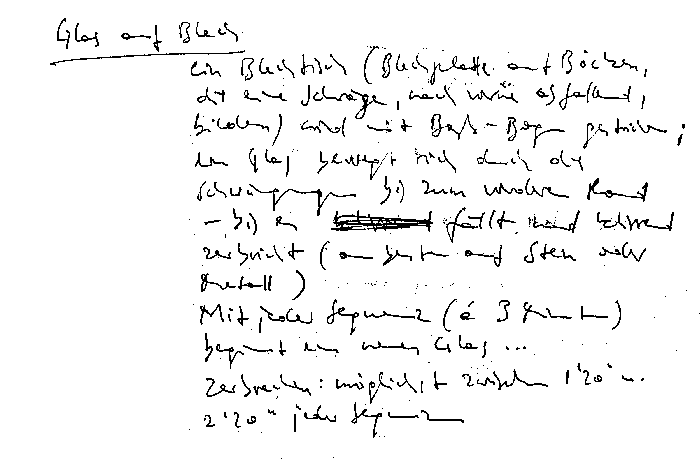 Glas auf Blech
ein Blechtisch (Blechplatte auf Böcken,
die eine Schräge, nach vorne abfallend,
bilden) wird mit Baß-Bogen gestrichen;
ein Glas bewegt sich durch die
Schwingungen bis zum vorderen Rand
– bis es fällt und klirrend
zerbricht (am besten auf Stein oder
Metall)
Mit jeder Sequenz (à 3 Minuten)
beginnt ein neues Glas ...
Zerbrechen: möglichst zwischen 1'20" u.
2'20" jeder Sequenz